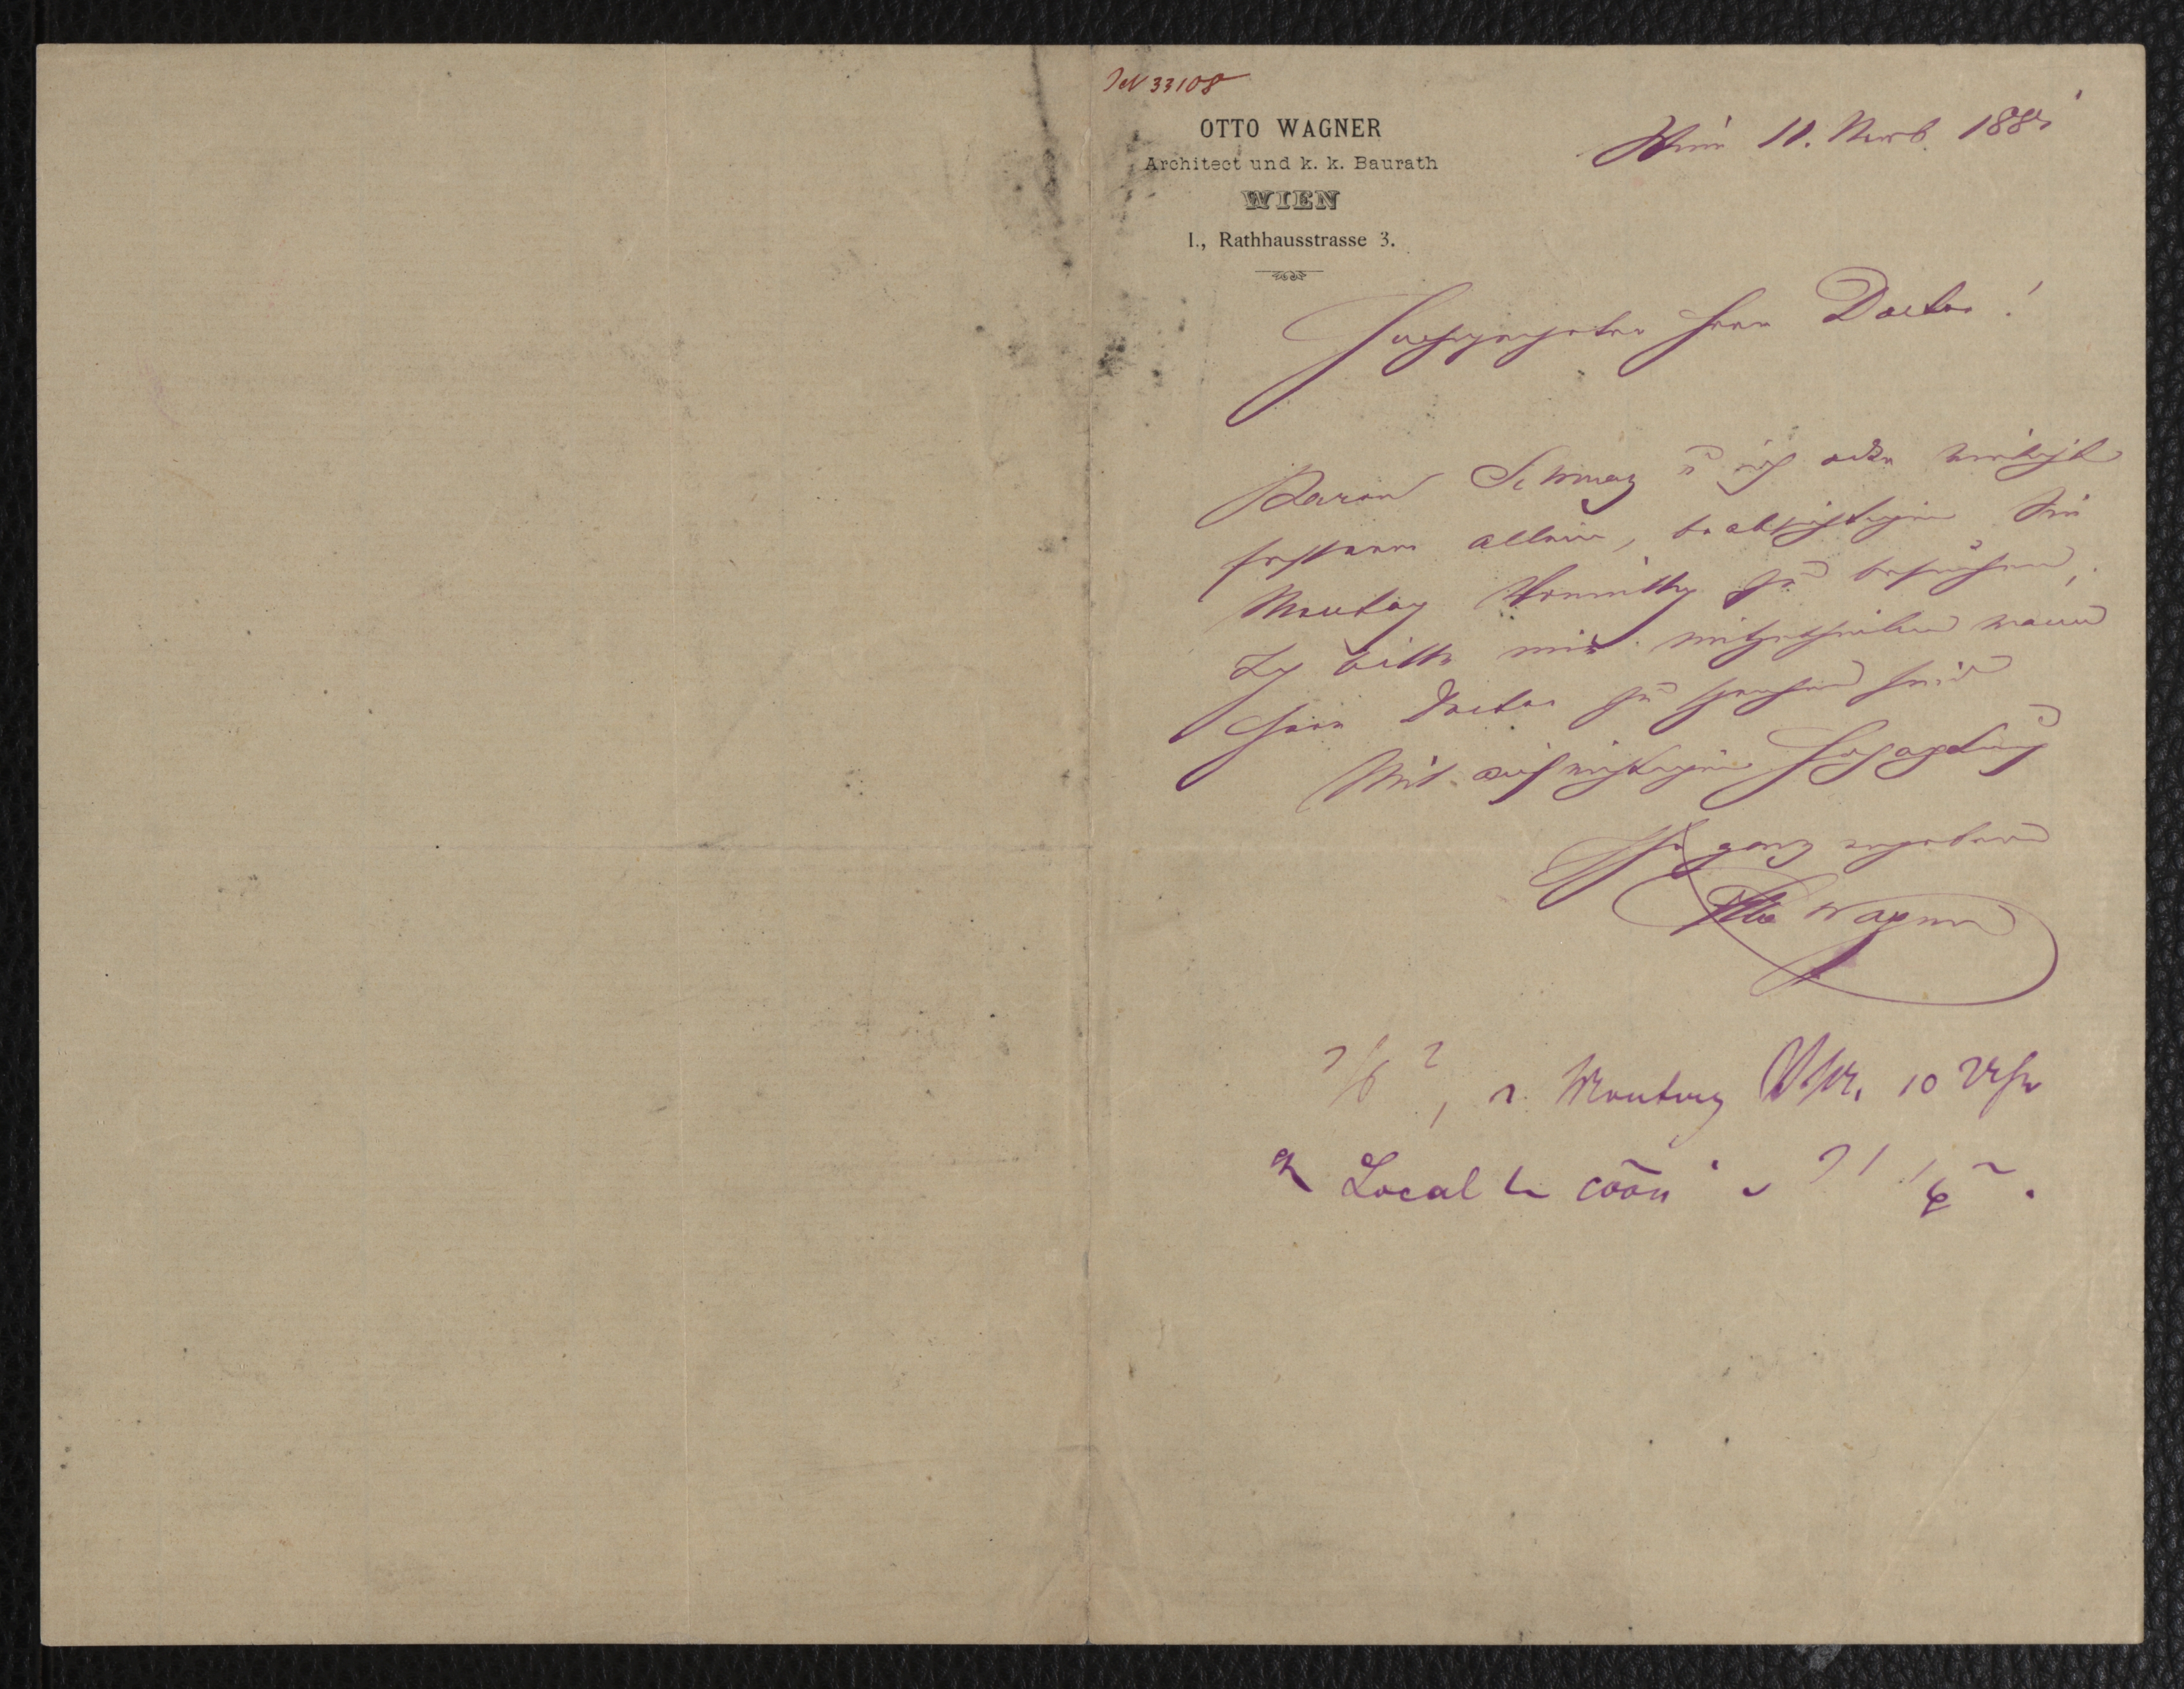 JN 33108
OTTO WAGNER
Architect und k. k. Baurath
WIEN
I., Rathhausstrasse 3.
Wien 11. Novb. 188
Hochgeehrter Herr Doctor!
Baron Schwarz u ich oder vieleicht
ersterer allein, beabsichtigen Sie
Montag Vormittag zu besuchen,
Ich bitte mir mitzutheilen wann
Herr Doctor zu sprechen sind
Mit aufrichtigster Hochachtung
Ihr ganz ergebener
Otto Wagner
Montag 10 Uhr
Local